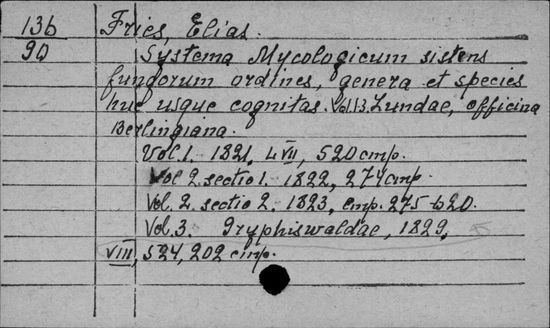 13б Fries, Elias.
90 Systema Mycologicum sistens
fungorum ordines, genera et species
huc usque cognitas. Vol 1-3. Lundae, officina
Berlingiana.
Vol. 1. 1821, LVII, 520 стр.
Vol 2. sectio 1. 1822, 274 стр.
Vol. 2. sectio 2. 1823, стр. 275-620.
Vol. 3. Gryphiswaldae, 1829,
VIII, 524, 202 стр.